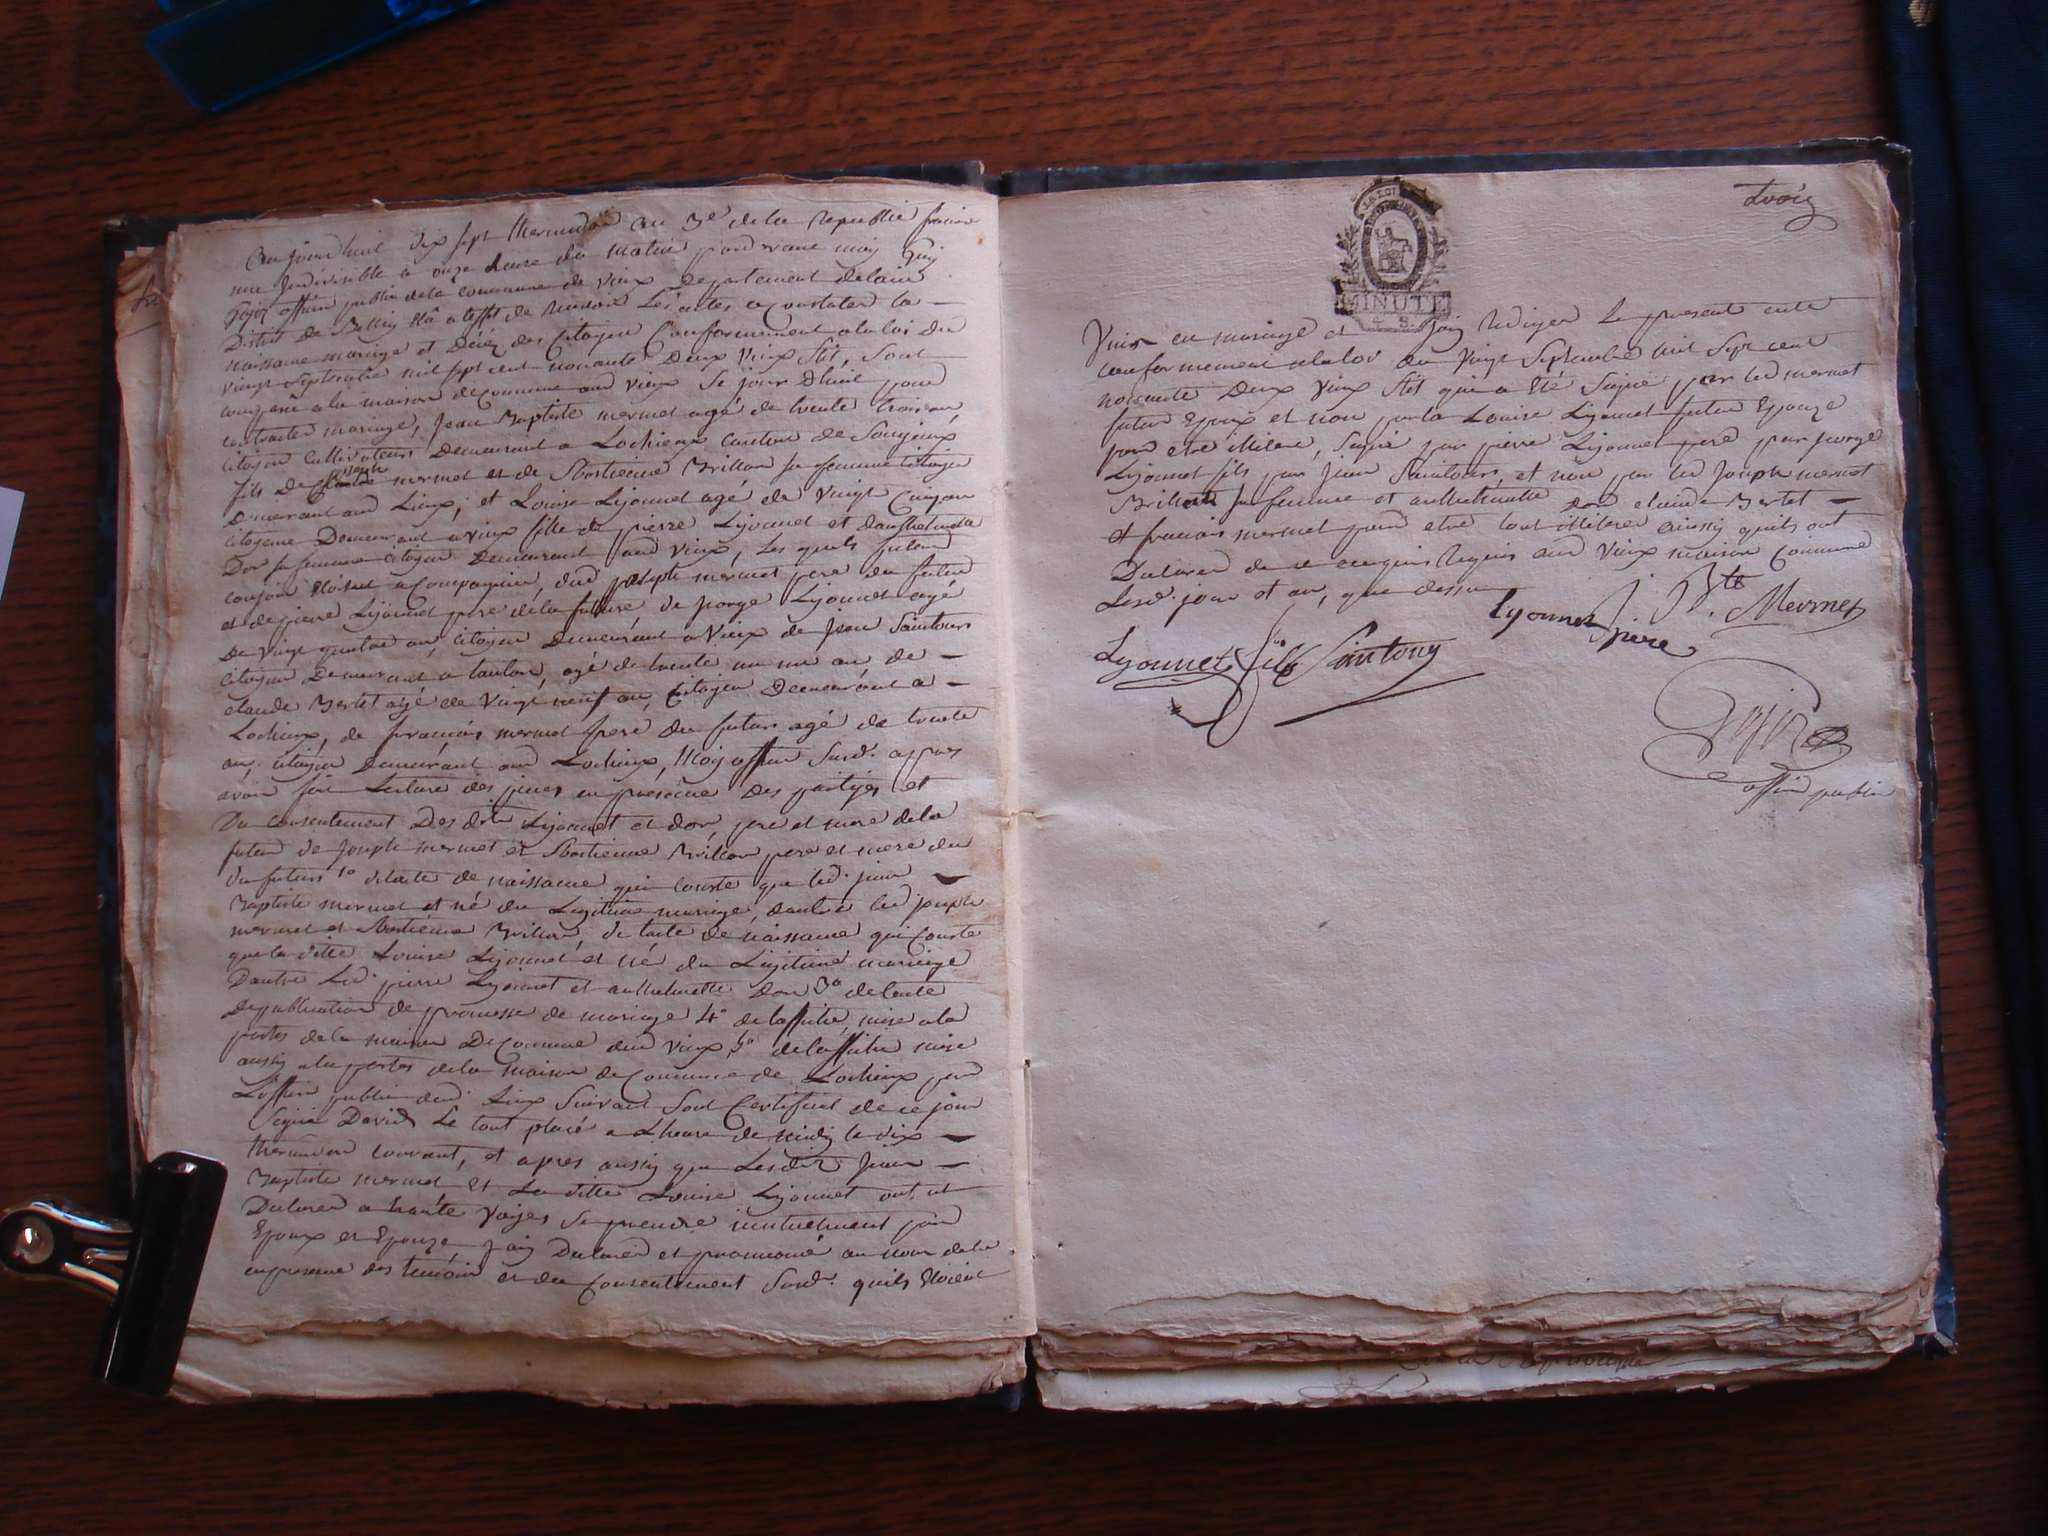 Aujourdhuit dix sept thermidor an 3e de la republie francai
une Indivisible a onze heure du matin pard vant moy Guy
Gojoz officier public de la commune de Vieux Departement delain
District de Belley élû a leffet de recevoir Les actes a Constater la
naissance mariage et Décéz des Citoyen Conformement alalois du
vingt Septembre mil sept cent nonante Deux Vieux Stil, Sont
comparu a la maison de commune aud vieux Se jour Dhuit pour
contracter mariage, Jean Baptiste mermet agé de trente trois an
Citoyen Cultivateurs Demeurant a Lochieux canton de Songieux
fils De joseph mermet et de Bastienne Brillon sa femme Citoyen
Demeurant aud Lieux, et Louise Lyonnet agé de vingt Cinq an
Citoyenne Demeurant a vieux fille de pierre Lyonnet et danthelmette
Dor sa femme Citoyen Demeurant aud vieux, Les quels futur
conjoin Etoient acompagnier, dud joseph mermet pere du futur
et de pierre Lyonnet pere de la future de Jorge Lyonnet agé
De Vingt quatre an, Citoyen Demeurant a Vieux de Jean Saintours
Citoyen Demeurant a tallon, agé de trente un an de
claude Bertet agé de Vingt neuf an, Citoyen Demeurant a
Lochieux, de francois mermet frere du futur agé de trente
an, Citoyen Demeurant aud Lochieux, Moy officier Susd. appres
avoir fait Lecture des pieces en presence Des partijes et
Du Consentement Des dits Lyonnet et dor, pere et mere de la
future de Joseph mermet et Bastienne Brillon pere et mere du
du futurs 1o de lacte de naissance qui Conste que led. jean
Baptiste mermet et né du Legitime mariage, dentre led joseph
mermet et Bastienne Brillon, de lacte de naissance qui Conste
que la ditte Louise Lyonnet et né du Legitime mariage
Dentre Led. pierre Lyonnet et anthelmette Dor 3o de lacte
De publication de promesse de mariage 4o de laffiche mise a la
portes de la maison De Commune dud vieux, 5o de laffiche mise
aussy a la portes de la maison de Commune de Lochieux par
Lofficier public dud Lieux Suivant Sont Certificat de ce jour
Signé David Le tout placé a Lheure de midy le dix
thermidor courrant, et apres aussy que Lesdit Jean
Baptiste mermet et La ditte Louise Lyonnet ont
Declarer a haute Voijes Se prendre mutuelment pour
Epoux et Epouze jaij Declaré et prononcé au nom dela
enpresence des temoin et du Consentement Susd. quils Etoient
trois
LA LOI
MINUTE
Unis en mariage et jaij Rediger Le present acte
conformement alaloi du Vingt Septembre mil Sept cent
nonante Deux Vieux Stil qui a Eté Signé par led mermet
futur Epoux et non par la Louise Lyonnet future Epouze
pour etre illitere, Signé par pierre Lyonnet pere par jeorge
Lyonnet fils par jean Saintours, et non par led Joseph mermet
Brillon sa femme et anthelmette Dor claude Bertet
et francois mermet pour etre tout illiterer ainsy quils ont
Declarer de ce enquis Requis aud Vieux maison Commune
Lesd. jour et an, que dessu
J. Bte Mermet
Lyonnet pere
Lyonnet fils Saintours
Gojoz
officier public